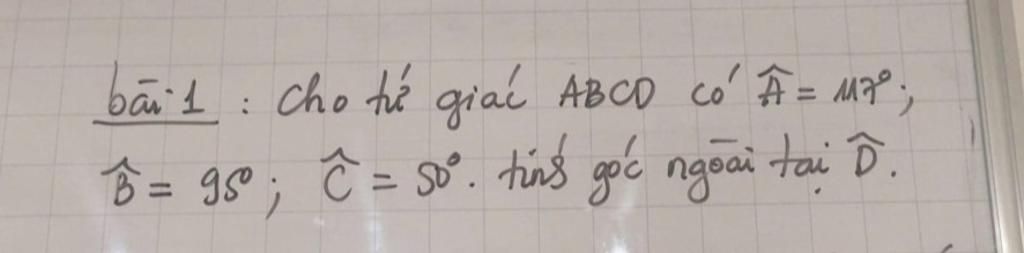 bài 1 : Cho tứ giác ABCD có Â = 117°;
B̂ = 95°; Ĉ = 50°. tính góc ngoài tại D̂.